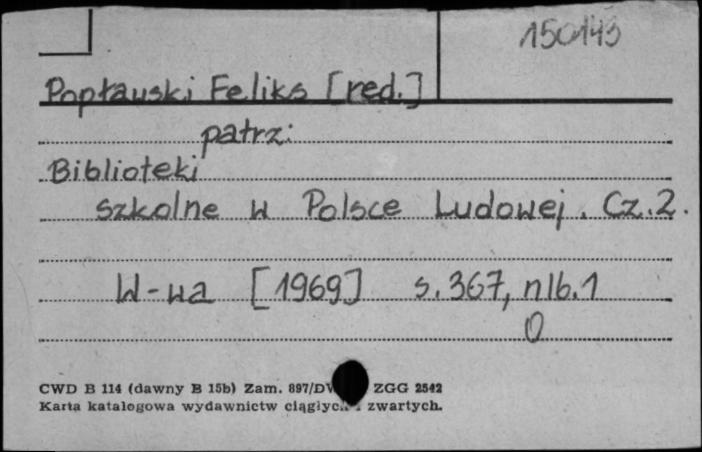 150143
Popławski Feliks [red.]
patrz:
Biblioteki
szkolne w Polsce Ludowej. Cz. 2.
W-wa [1969] s. 367, nlb. 1
0
CWD B 114 (dawny B 15b) Zam. 897/D ZGG 2542
Karta katalogowa wydawnictw zwartych.